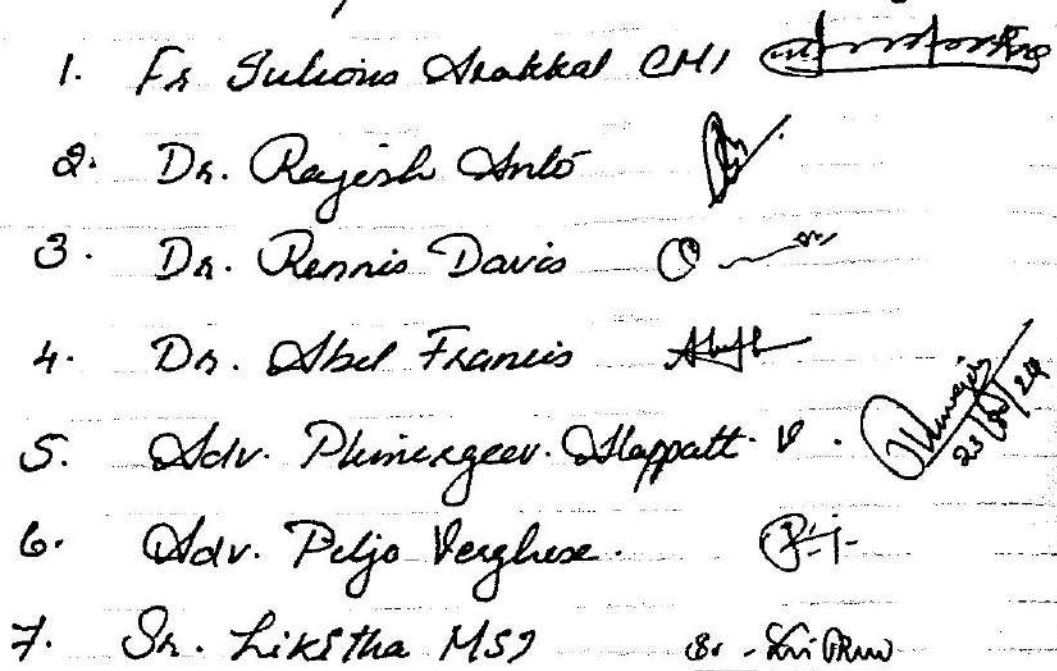 1. Fr Julious Arakkal CMI
2. Dr. Rajesh Anto
3. Dr. Rennis Davis
4. Dr. Abel Francis
5. Adv. Alappatt. V. 23/10/24
6. Adv. Peljo Verghese.
7. Sr. Likstha MSJ Sr.